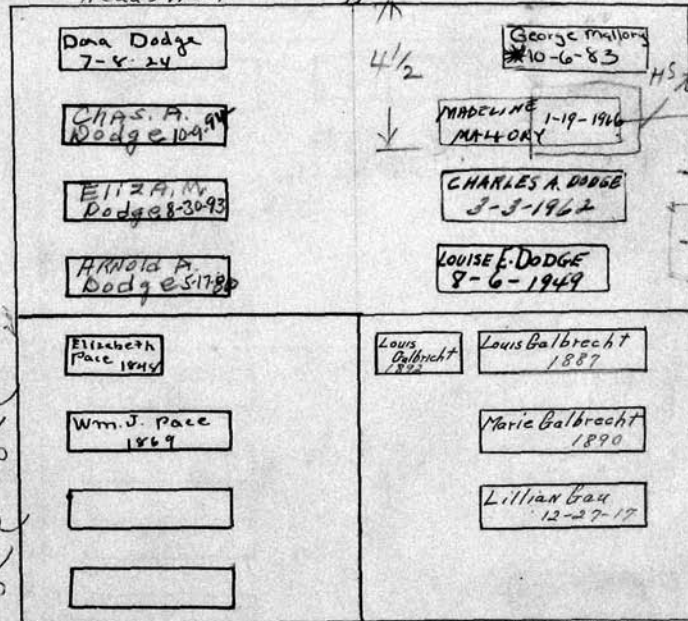 4 1/2
Dora Dodge
7-8-24
Chas. A.
Dodge 10-9-94
Eliz A. M.
Dodge 8-30-93
ARNold A.
Dodge 5-17-80
George Mallory
*10-6-83
HS
MADELINE
MALLORY
1-19-1966
CHARLES A. DODGE
3-3-1962
LOUISE E. DODGE
8-6-1949
Elizebeth
Pace 1844
Wm. J. Pace
1869
Louis
Galbricht
1892
Louis Galbrecht
1887
Marie Galbrecht
1890
Lillian Gau
12-27-17